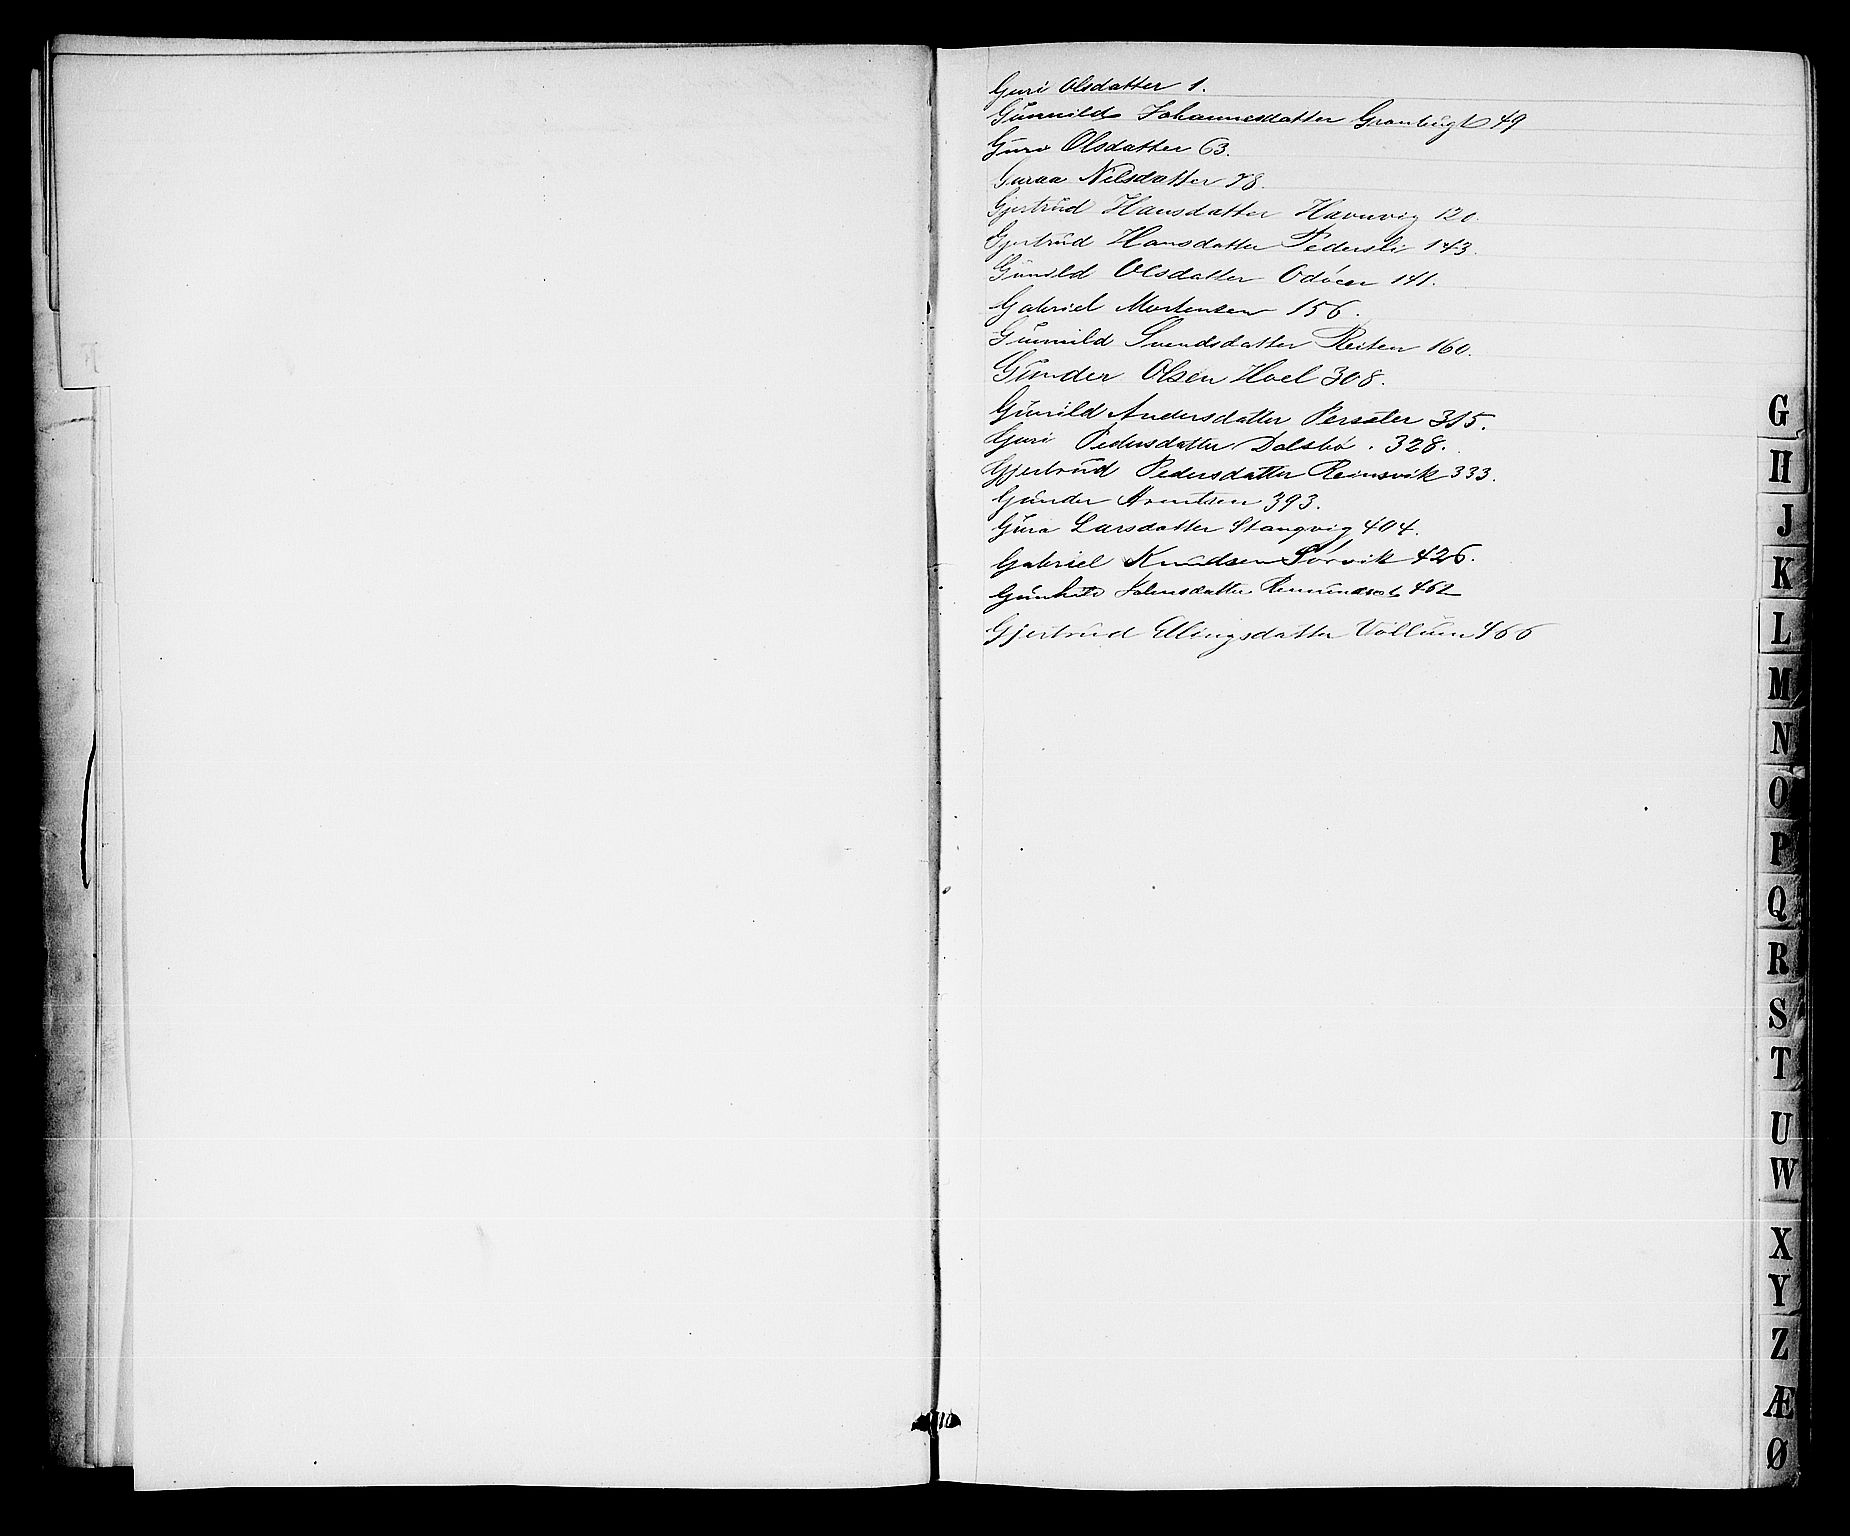 Guri Olsdatter 1.
Gunnild Johannesdatter Granbugt 49
Guri Olsdatter 63.
Guraa Nilsdatter 78.
Gjertrud Hansdatter Havnvig 120.
Gjertrud Hansdatter Pedersli 143.
Gunild Olsdatter 141.
Gabriel Mortensen 156.
Gunnild Svendsdatter Reiten 160.
Gunder Olsen Hoel 308.
Gunild Andersdatter Persæter 315.
Guri Pedersdatter Dalsbø. 328.
Gjertrud Pedersdatter Reinsvik 333.
Gunder Arentsen 393.
Gura Larsdatter Stangvig 404.
Gabriel Knudsen Sørvik 426.
Gunhild Johnsdatter 462
Gjertrud Ellingsdatter Vollum 466
G
H
J
K
L
M
N
O
P
Q
R
S
T
U
W
X
Y
Z
Æ
Ø